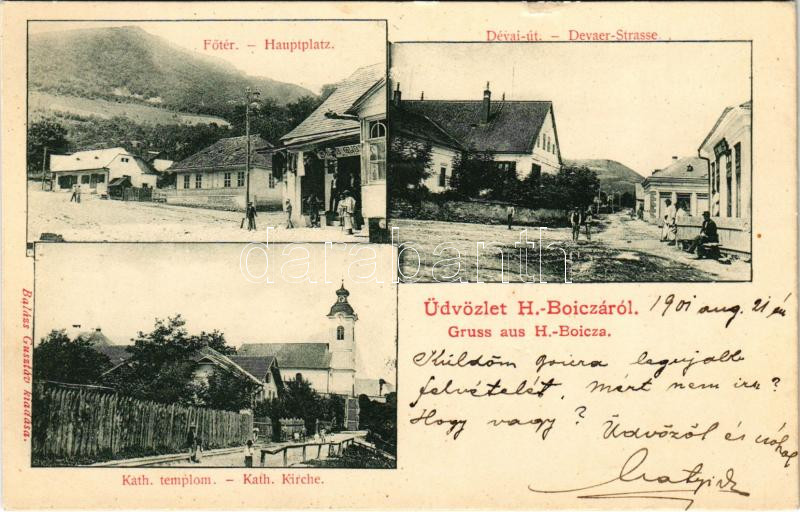 Főtér. - Hauptplatz.
Dévai-út. - Devaer-Strasse.
darabanth
Üdvözlet H.-Boiczáról.
1901 aug. 21 én
Gruss aus H.-Boicza.
Küldöm Boicza legujabb
felvételét. Miért nem irsz?
Hogy vagy?
Üdvözöl és
Kath. templom. - Kath. Kirche.
Balázs Gusztáv kiadása.